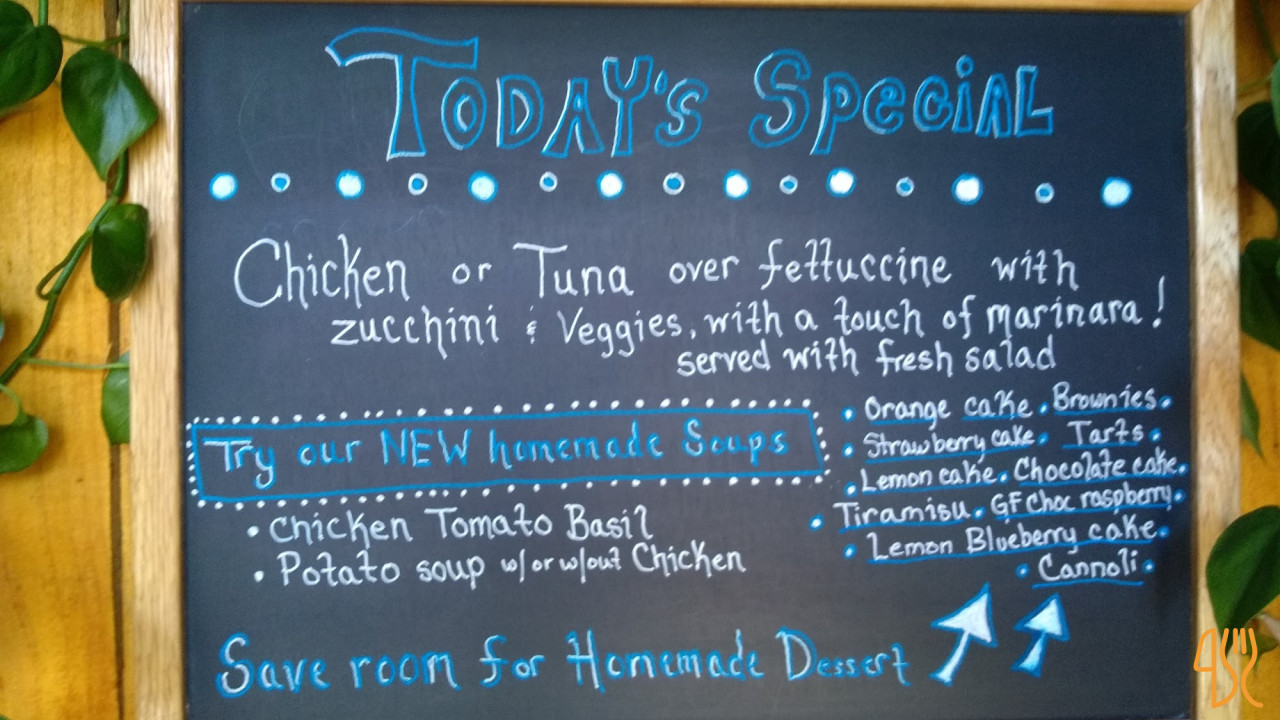 TODAY'S SPECIAL
Chicken or Tuna over fettuccine with
zucchini & Veggies, with a touch of marinara!
served with fresh salad
Try our NEW homemade Soups
• Chicken Tomato Basil
• Potato soup w/ or w/out Chicken
• Orange cake • Brownies •
• Strawberry cake • Tarts •
• Lemon cake • Chocolate cake •
• Tiramisu • GF Choc raspberry •
• Lemon Blueberry cake •
• Cannoli •
Save room for Homemade Dessert